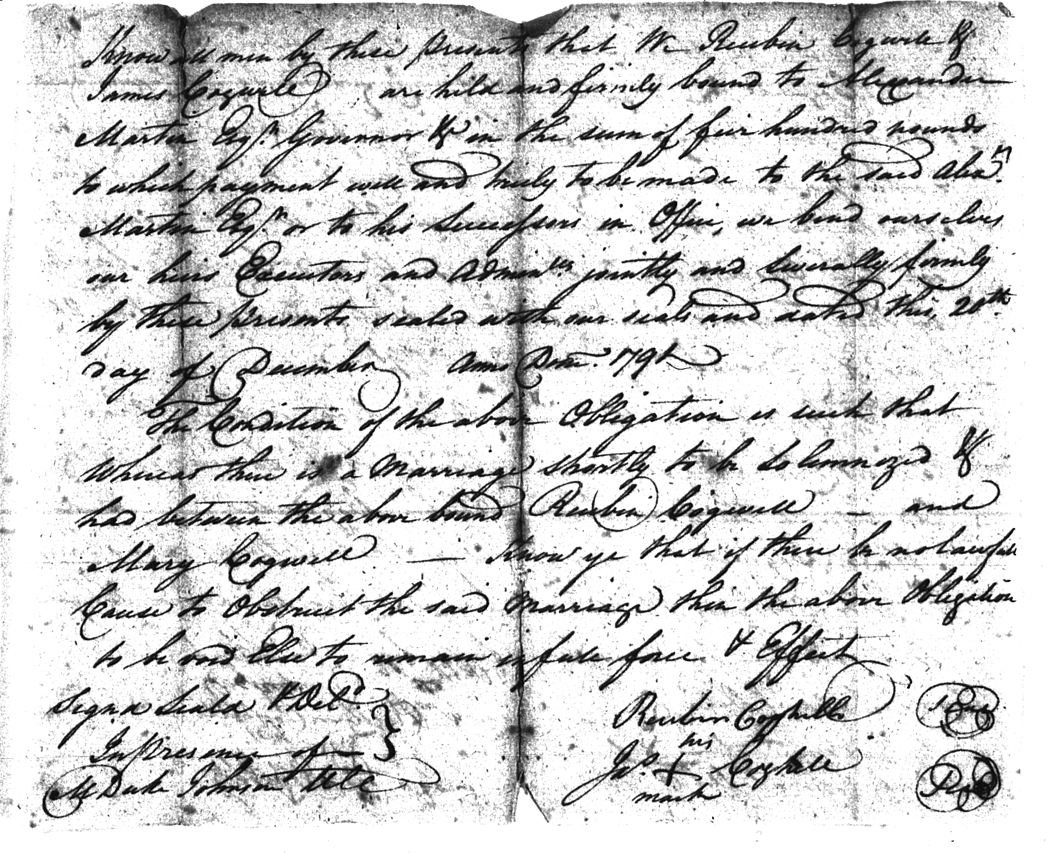 Know all men by these presents that We Reubin Cogwell &
James Cogwell are held and firmly bound to Alexander
Martin Esqr. Governor & in the sum of five hundred pounds
to which payment well and truly to be made to the said Alexr.
Martin Esqr. or to his Successors in Office, we bind ourselves
our heirs Executors and Adminrs jointly and Severally firmly
by these presents sealed with our seals and dated this 20th.
day of December Anno Dom. 179
The Condition of the above Obligation is such that
Whereas there is a Marriage shortly to be Solemnozed &
had between the above bound Reubin Cogwell — and
Mary Cogwell — Know ye that if there be no lawfull
Cause to Obstruct the said Marriage then the above Obligation
to be void Else to remain in full force & Effect
Signd Seald & Deld
In presence of
Duke Johnson
Reubin Coghill
his
Jas. + Coghill
mark